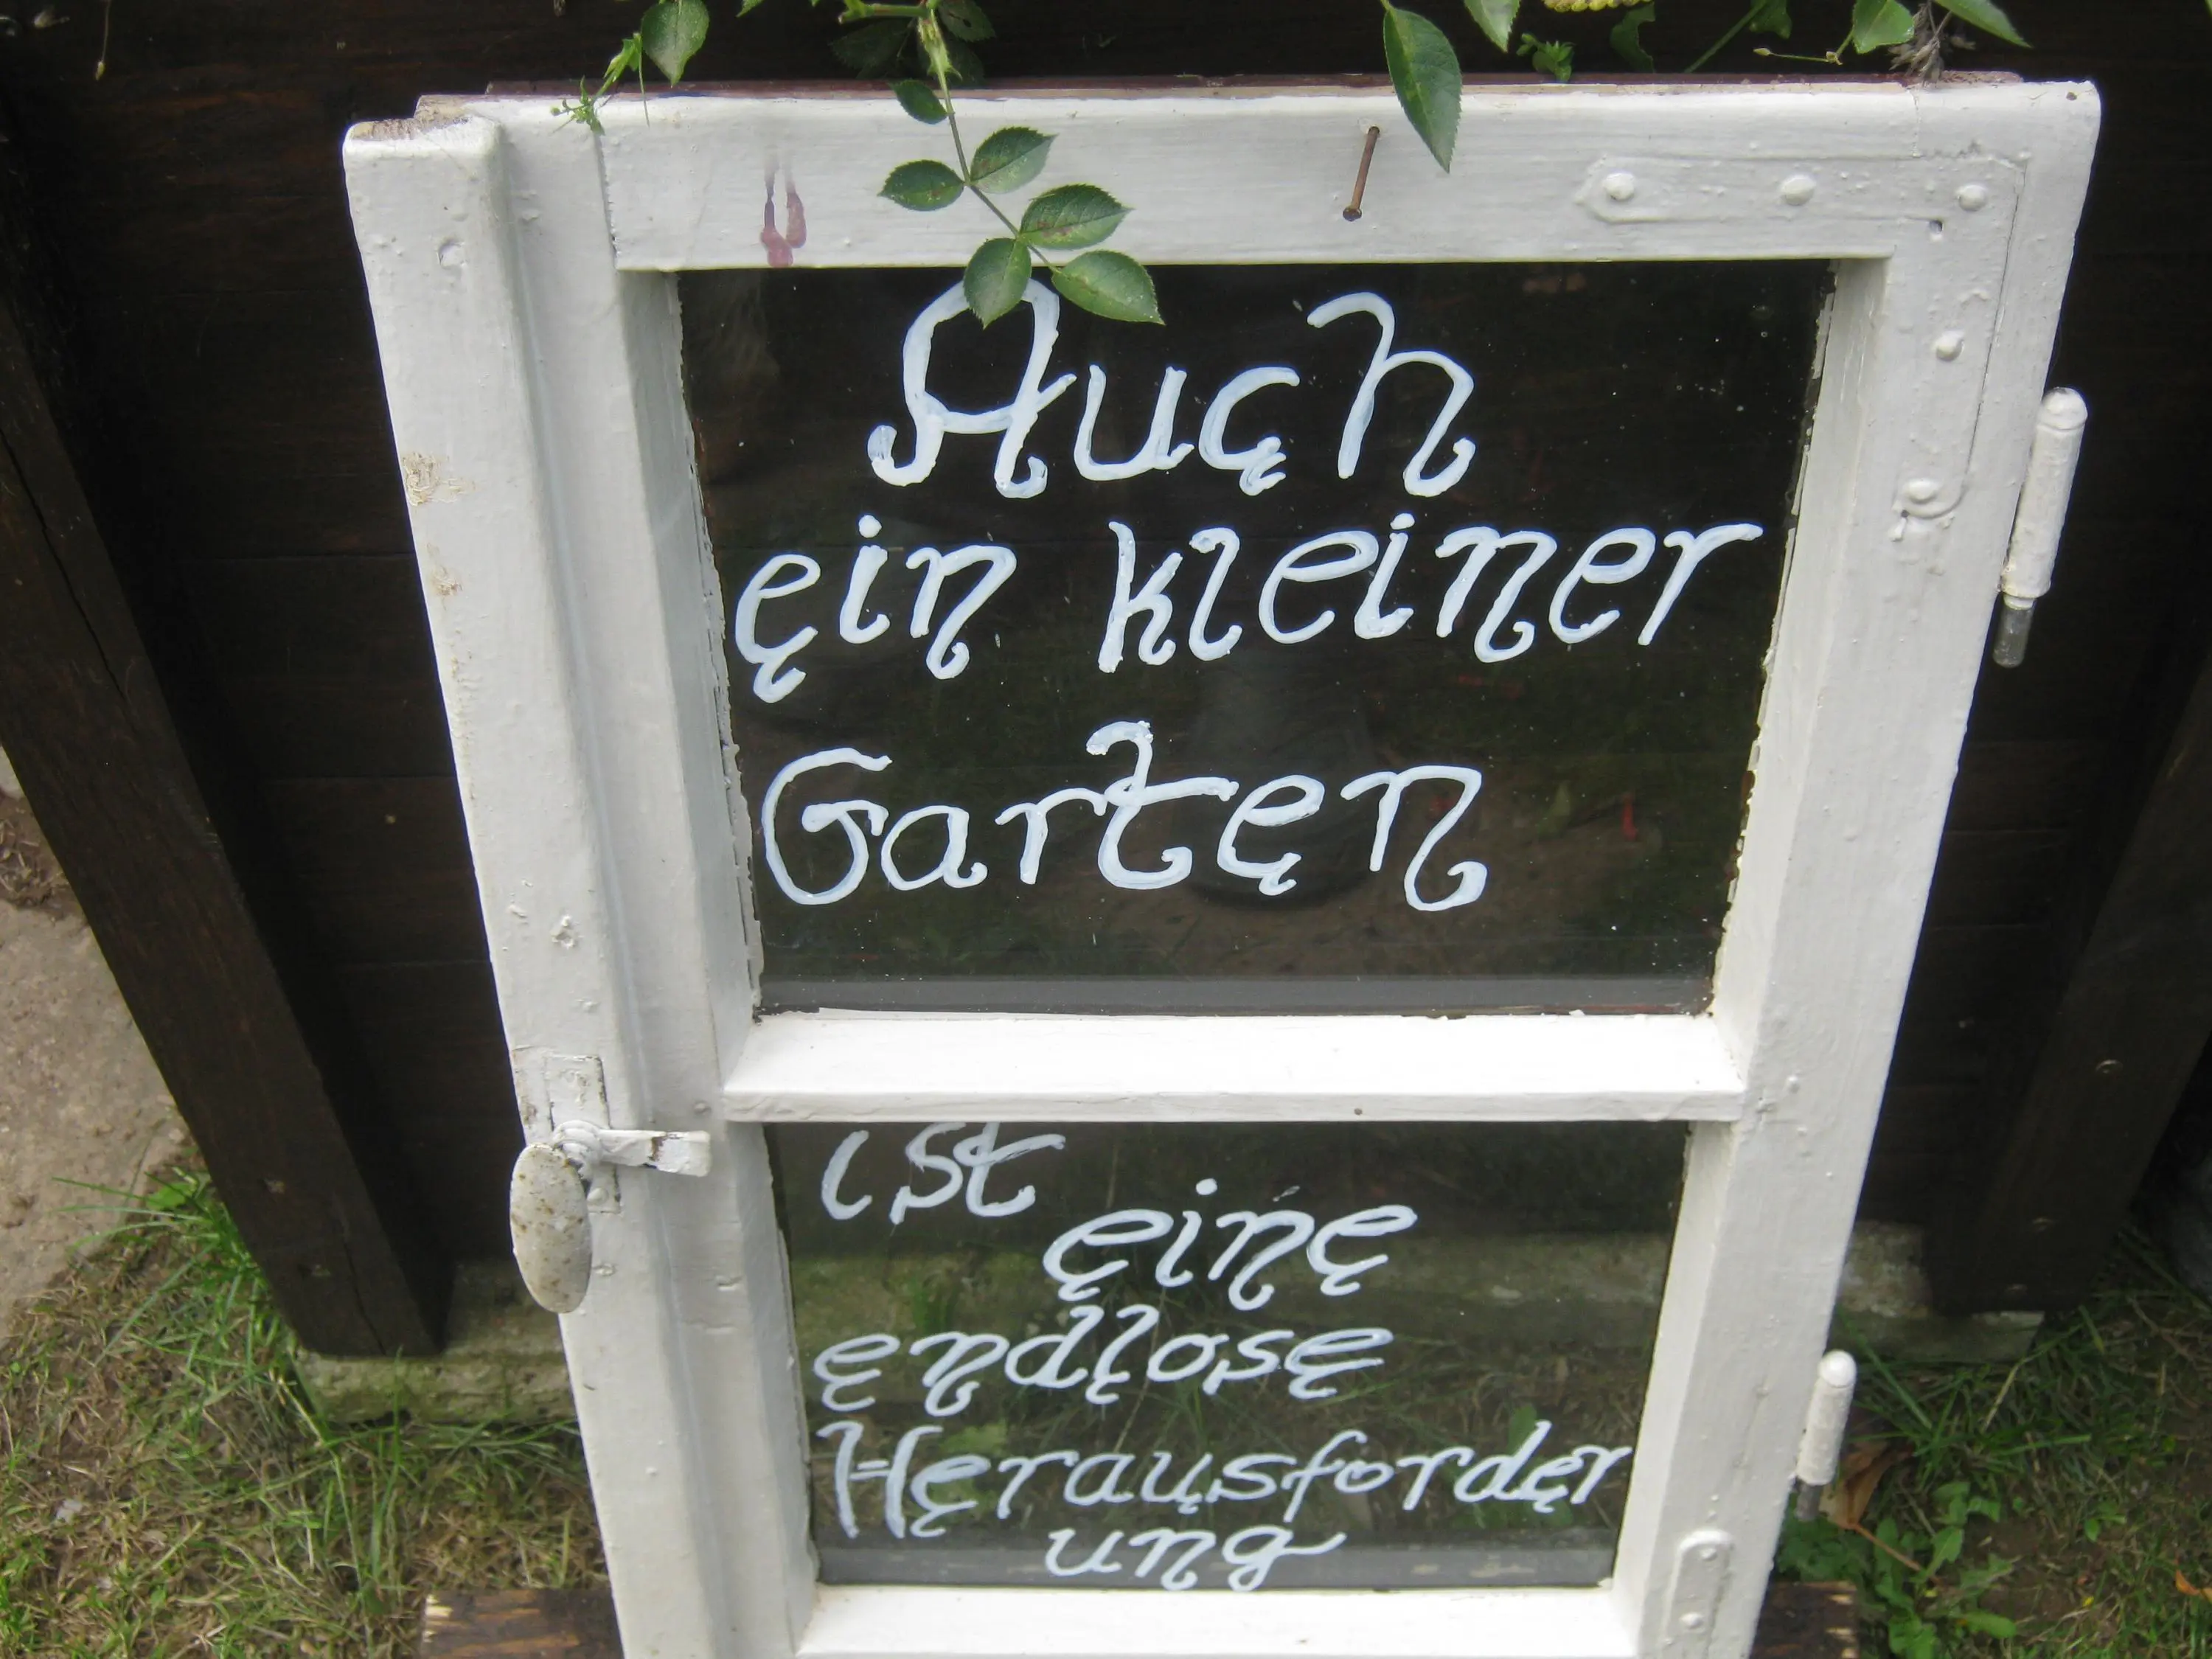 Auch
ein kleiner
Garten
ist
eine
endlose
Herausforder
ung